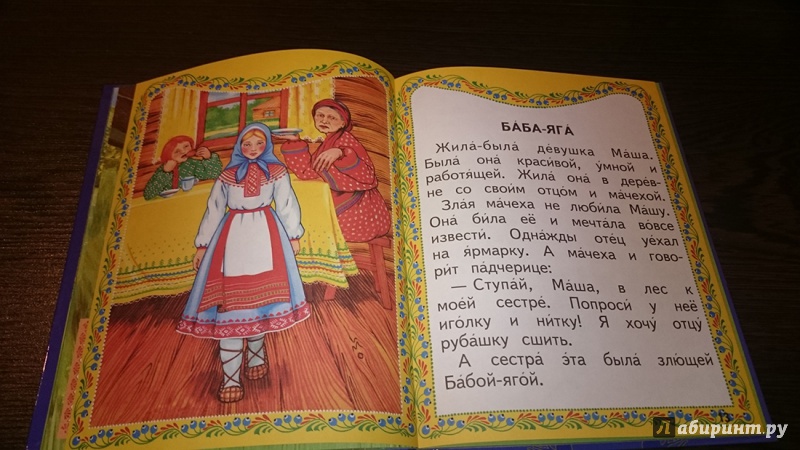 БА́БА-ЯГА́
Жила́-была́ де́вушка Ма́ша.
Была́ она́ краси́вой, у́мной и
рабо́тящей. Жила́ она́ в дере́в-
не со свои́м отцо́м и ма́чехой.
Зла́я ма́чеха не люби́ла Ма́шу.
Она́ би́ла её и мечта́ла во́все
извести. Одна́жды оте́ц уе́хал
на я́рмарку. А ма́чеха и гово-
ри́т па́дчерице:
— Ступа́й, Ма́ша, в лес к
мое́й сестре́. Попроси́ у неё
иго́лку и ни́тку! Я хочу́ отцу́
руба́шку сшить.
А сестра́ э́та была́ злю́щей
Ба́бой-яго́й.
Лабиринт.ру